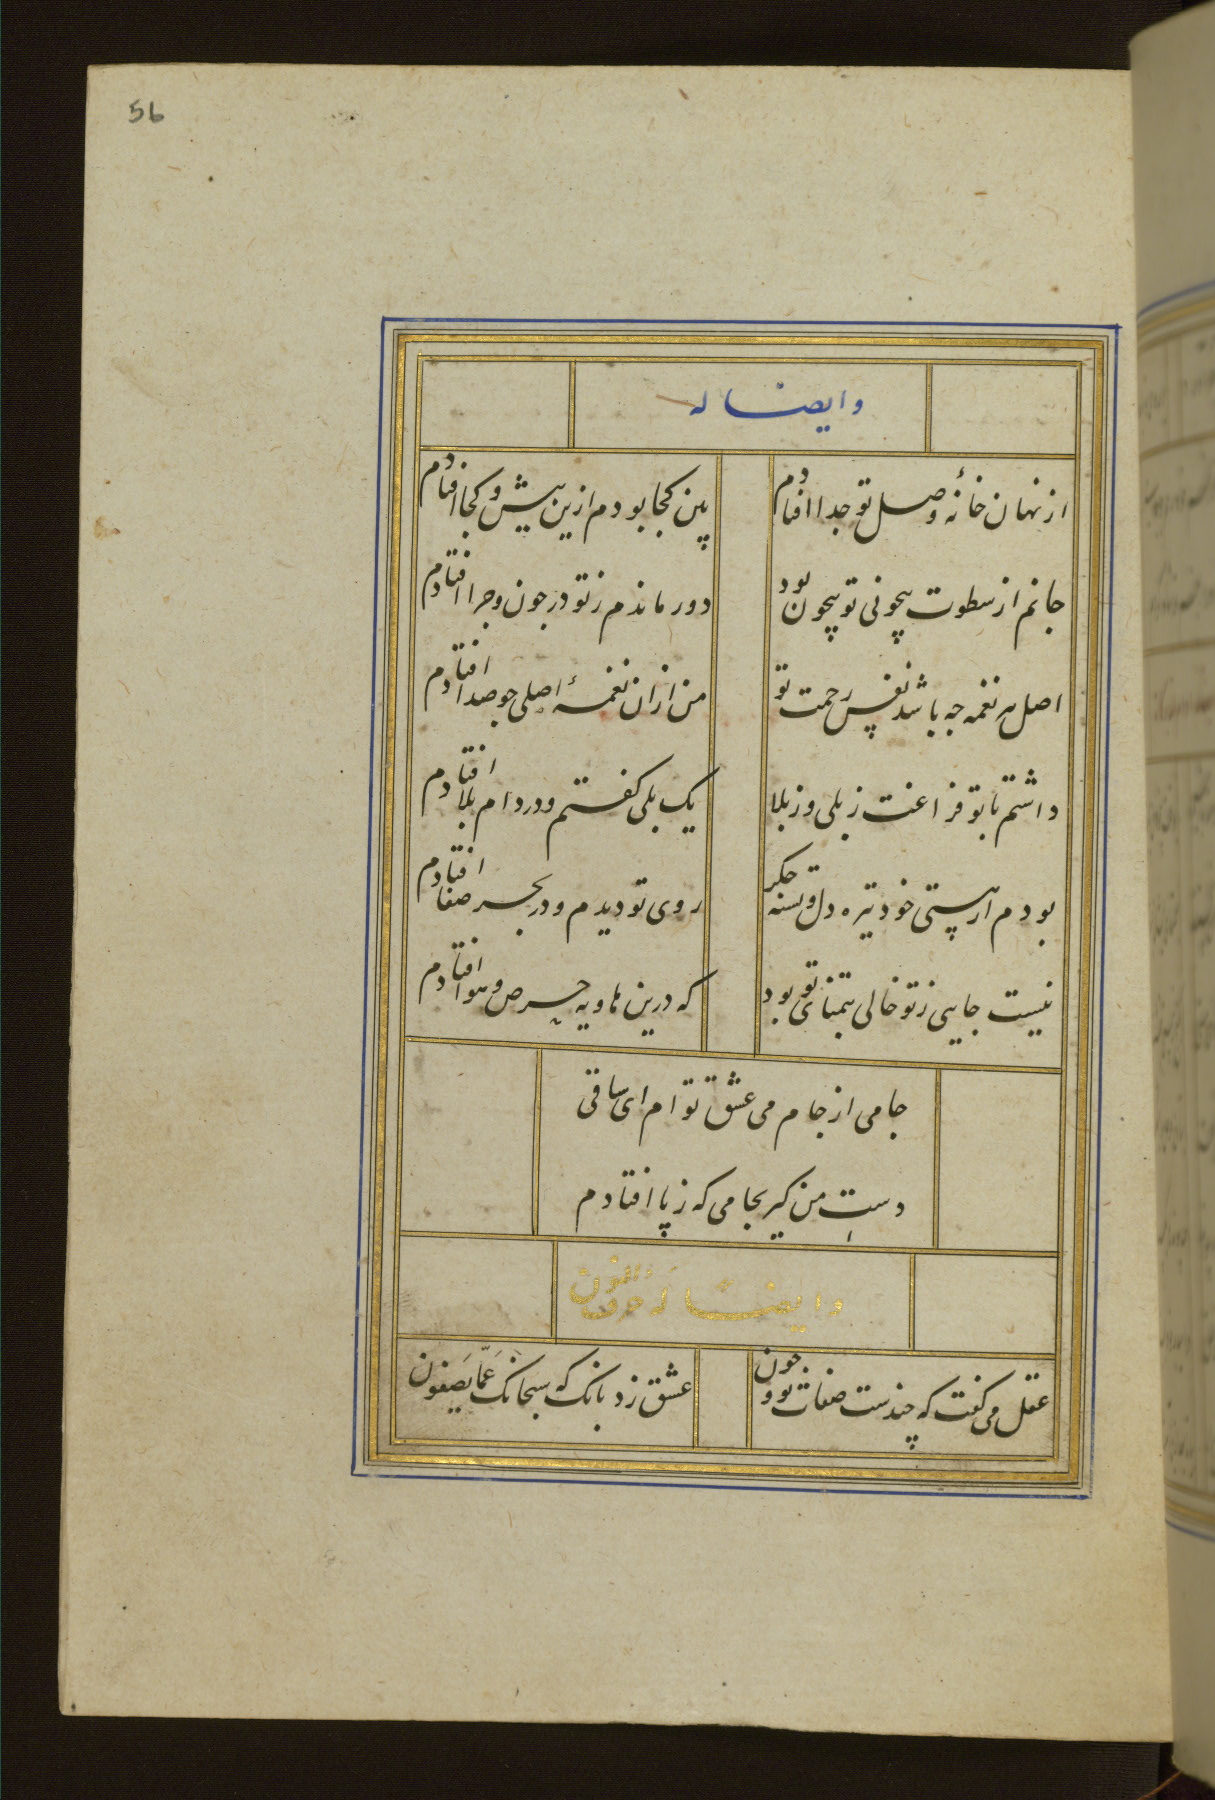 56
وایضا له
از نهان خانهٔ وصل تو جدا افتادم
ببین کجا بودم ازین پیش و کجا افتادم
جانم از سطوت بیچونی تو بیچون بود
دور ماندم ز تو در چون و چرا افتادم
اصل هر نغمه چه باشد نفس رحمت تو
من ازان نغمهٔ اصلی چو صدا افتادم
داشتم با تو فراغت ز بلی وز بلا
یک بلی گفتم و در دام بلا افتادم
بودم از هستی خود تیره دل و تشنه جگر
روی تو دیدم و در بحر صفا افتادم
نیست جایی ز تو خالی بتمنای تو بود
که درین هاویه حرص و هوا افتادم
جامی از جام می عشق توام ای ساقی
دست من گیر بجامی که ز پا افتادم
وایضا له حرف النون
عقل می گفت که چندست صفات تو و چون
عشق زد بانک که سبحانک عَمّا یَصِفون